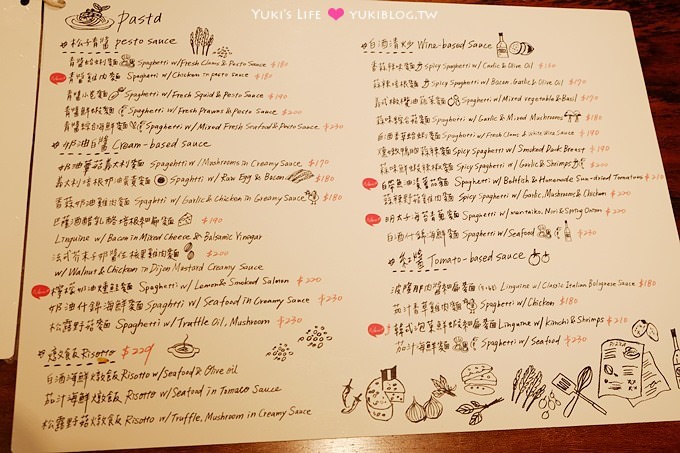 YUKI'S LIFE ❤ YUKIBLOG.TW
Pasta
松子青醬 pesto sauce
青醬蛤蜊麵 Spaghetti w/Fresh Clams & Pesto Sauce $180
青醬雞肉麵 Spaghetti w/Chicken in pesto sauce $180
青醬小卷麵 Spaghetti w/Fresh Squid & Pesto Sauce $190
青醬鮮蝦麵 Spaghetti w/Fresh Prawns & Pesto Sauce $200
青醬綜合海鮮麵 Spaghetti w/Mixed Fresh Seafood & Pesto Sauce $230
奶油白醬 Cream-based sauce
奶油蘑菇義大利麵 Spaghetti w/Mushrooms in Creamy Sauce $170
義大利培根奶油蛋麵 Spaghetti w/Raw Egg & Bacon $180
香蒜奶油雞肉麵 Spaghetti w/Garlic & Chicken in Creamy Sauce $180
巴薩酒醋乳酪培根細扁麵 $190
Linguine w/Bacon in Mixed Cheese & Balsamic Vinegar
法式芥末子奶醬佐核果雞肉麵 $200
w/Walnut & Chicken in Dijon Mustard Creamy Sauce
檸檬奶油燻鮭麵 Spaghetti w/Lemon & Smoked Salmon $220
奶油什錦海鮮麵 Spaghetti w/Seafood in Creamy Sauce $230
松露野菇麵 Spaghetti w/Truffle Oil, Mushroom $230
燉飯 Risotto $229
白酒海鮮燉飯 Risotto w/Seafood & Olive oil
茄汁海鮮燉飯 Risotto w/Seafood in Tomato Sauce
松露野菇燉飯 Risotto w/Truffle, Mushroom in Creamy Sauce
白酒清炒 Wine-based Sauce
香蒜辣味麵 Spicy Spaghetti w/Garlic & Olive Oil $150
蒜辣培根麵 Spicy Spaghetti w/Bacon, Garlic & Olive Oil $170
義式橄欖油蔬菜麵 Spaghetti w/Mixed Vegetable & Basil $170
蒜味綜合菇麵 Spaghetti w/Garlic & Mixed Mushrooms $180
白酒青蒜蛤蜊麵 Spaghetti w/Fresh Clams & White Wine Sauce $190
煙燻鴨胸蒜辣麵 Spicy Spaghetti w/Smoked Duck Breast $190
蒜味鮮蝦辣椒麵 Spicy Spaghetti w/Garlic & Shrimps $200
Spaghetti w/Batfish & Homemade Sun-dried Tomatoes $210
蒜辣野菇雞肉麵 Spicy Spaghetti w/Garlic, Mushroom & Chicken $220
明太子海苔蔥花麵 Spaghetti w/mantaiko, Nori & Spring Onion $220
白酒什錦海鮮麵 Spaghetti w/Seafood $230
紅醬 Tomato-based sauce
波隆那肉醬細扁麵 Linguine w/Classic Italian Bolognese Sauce $180
茄汁香草雞肉麵 Spaghetti w/Chicken $180
韓式泡菜鮮蝦細扁麵 Linguine w/Kimchi & Shrimps $210
茄汁海鮮麵 Spaghetti w/Seafood $230